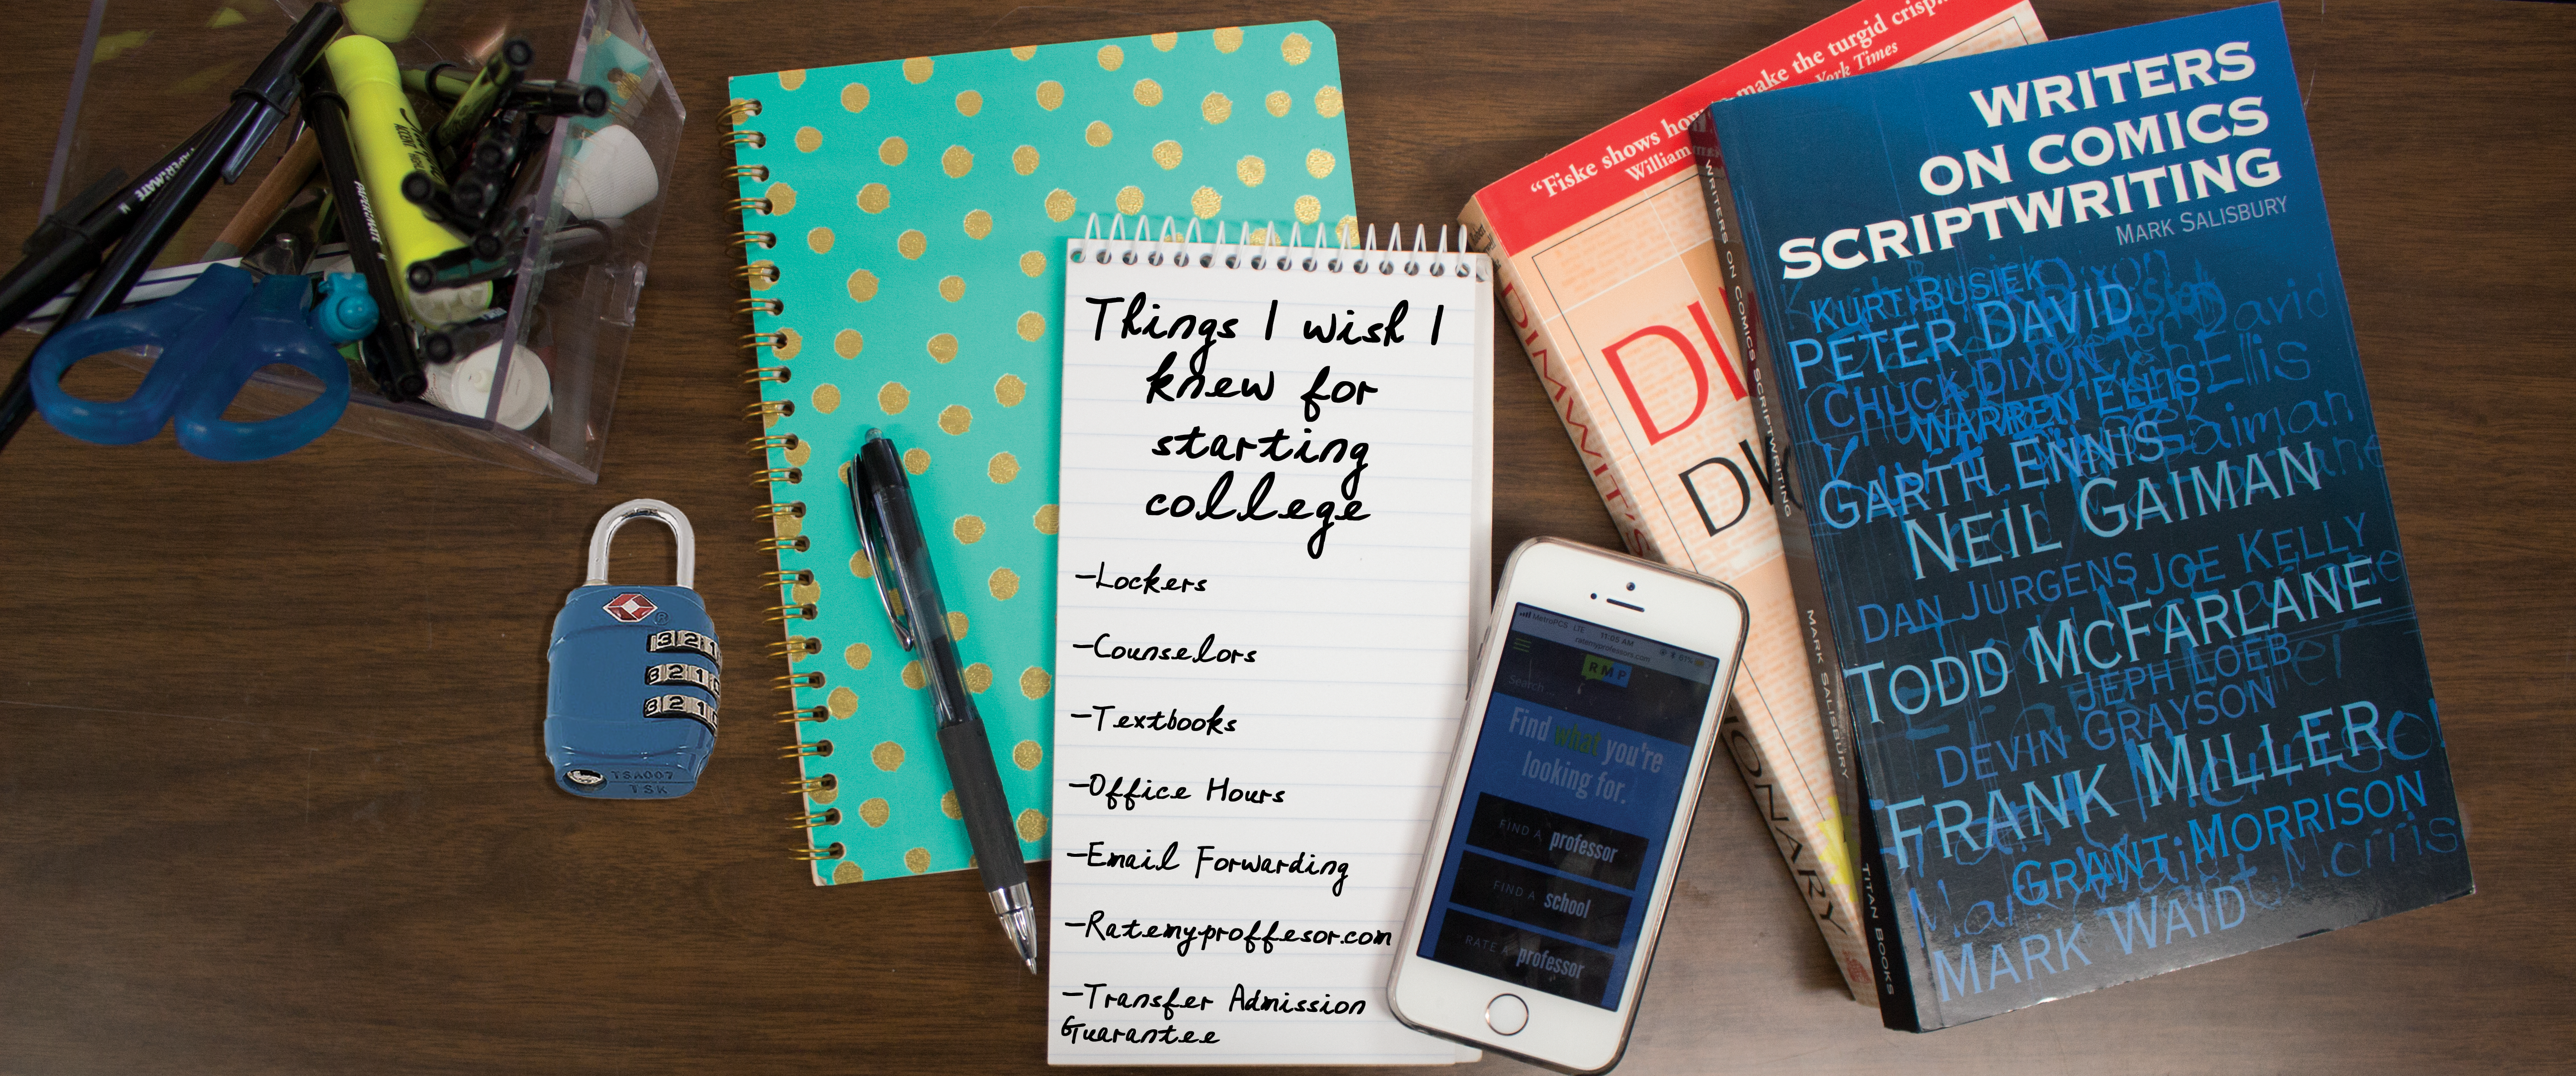 PAPERMATE
PAPERMATE
M
ACCENT
TSA007
TSK
3 2 1
3 2 1 0
3 2 1 0
Things I wish I
knew for
starting
college
-Lockers
-Counselors
-Textbooks
-Office Hours
-Email Forwarding
-Ratemyproffesor.com
-Transfer Admission
Guarantee
MetroPCS LTE 11:05 AM 61%
ratemyprofessors.com
RMP
Search
Find what you're
looking for.
FIND A professor
FIND A school
RATE A professor
"Fiske shows how make the turgid crisp
William York Times
DI
DIMWIT'S
WRITERS
ON COMICS
SCRIPTWRITING
MARK SALISBURY
KURT BUSIEK
PETER DAVID
CHUCK DIXON
WARREN ELLIS
GARTH ENNIS
NEIL GAIMAN
DAN JURGENS JOE KELLY
TODD MCFARLANE
JEPH LOEB
DEVIN GRAYSON
FRANK MILLER
GRANT MORRISON
MARK WAID
WRITERS ON COMICS SCRIPTWRITING
MARK SALISBURY
TITAN BOOKS